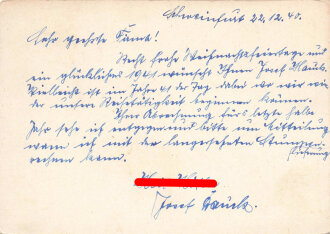 Schweinfurt 22.12.40.
Sehr geehrte Firma!
Recht frohe Weihnachtsfeiertage und
ein glückliches 1941 wünscht Ihnen Josef Hauck.
Vielleicht ist im Jahre 41 der Tag dabei wo wir wie
der unsere Reisetätigkeit beginnen können.
Ihrer Abrechnung fürs letzte halbe
Jahr sehe ich entgegen und bitte um Mitteilung
wann ich mit der langersehnten
rechnen kann.
Josef Hauck.